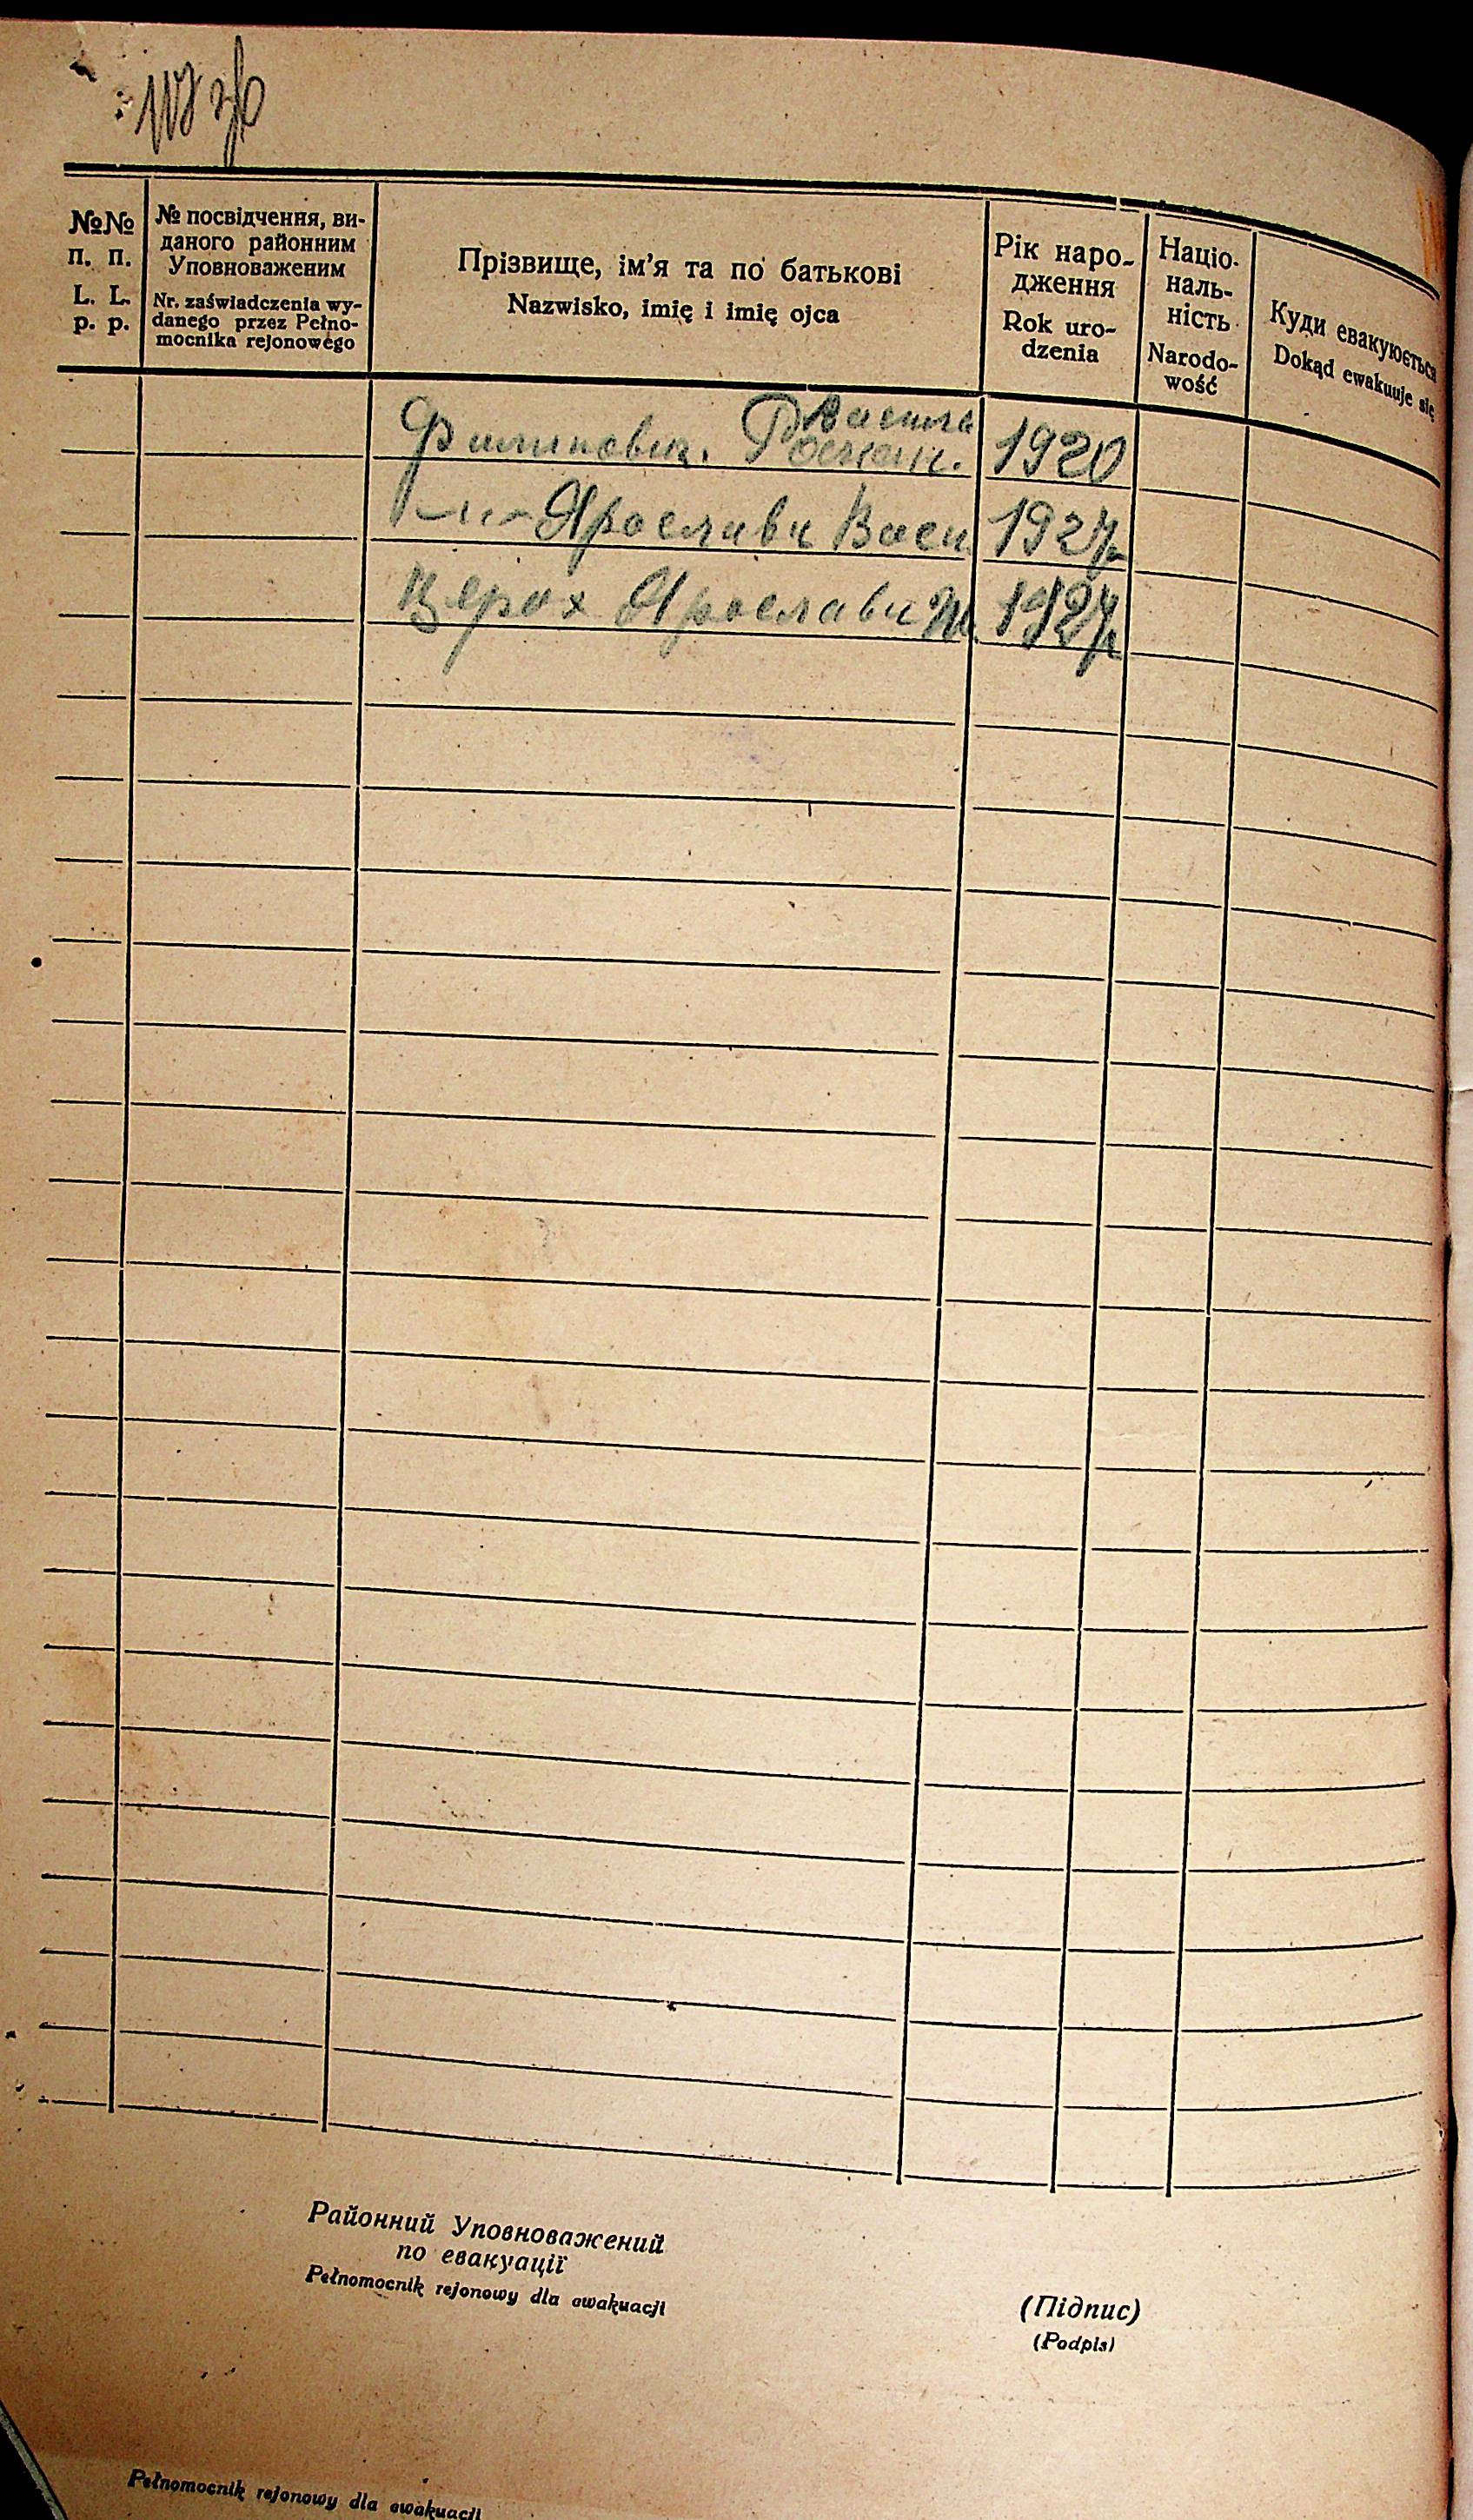 118 зв
№№
п. п.
L. L.
p. p.
№ посвідчення, ви-
даного районним
Уповноваженим
Nr. zaświadczenia wy-
danego przez Pełno-
mocnika rejonowego
Прізвище, ім’я та по батькові
Nazwisko, imię i imię ojca
Рік наро-
дження
Rok uro-
dzenia
Націо-
наль-
ність
Narodo-
wość
Куди евакуюється
Dokąd ewakuuje się
Василь
1920
Ярослави Васи
1927
Ярослави
1927
Районний Уповноважений
по евакуації
Pełnomocnik rejonowy dla ewakuacji
(Підпис)
(Podpis)
Pełnomocnik rejonowy dla ewakuacji